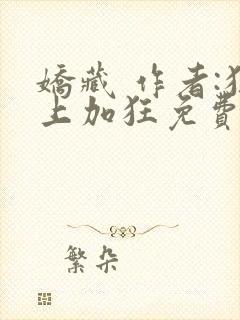 嬌藏 作者:狂
上加狂免費
繁朵